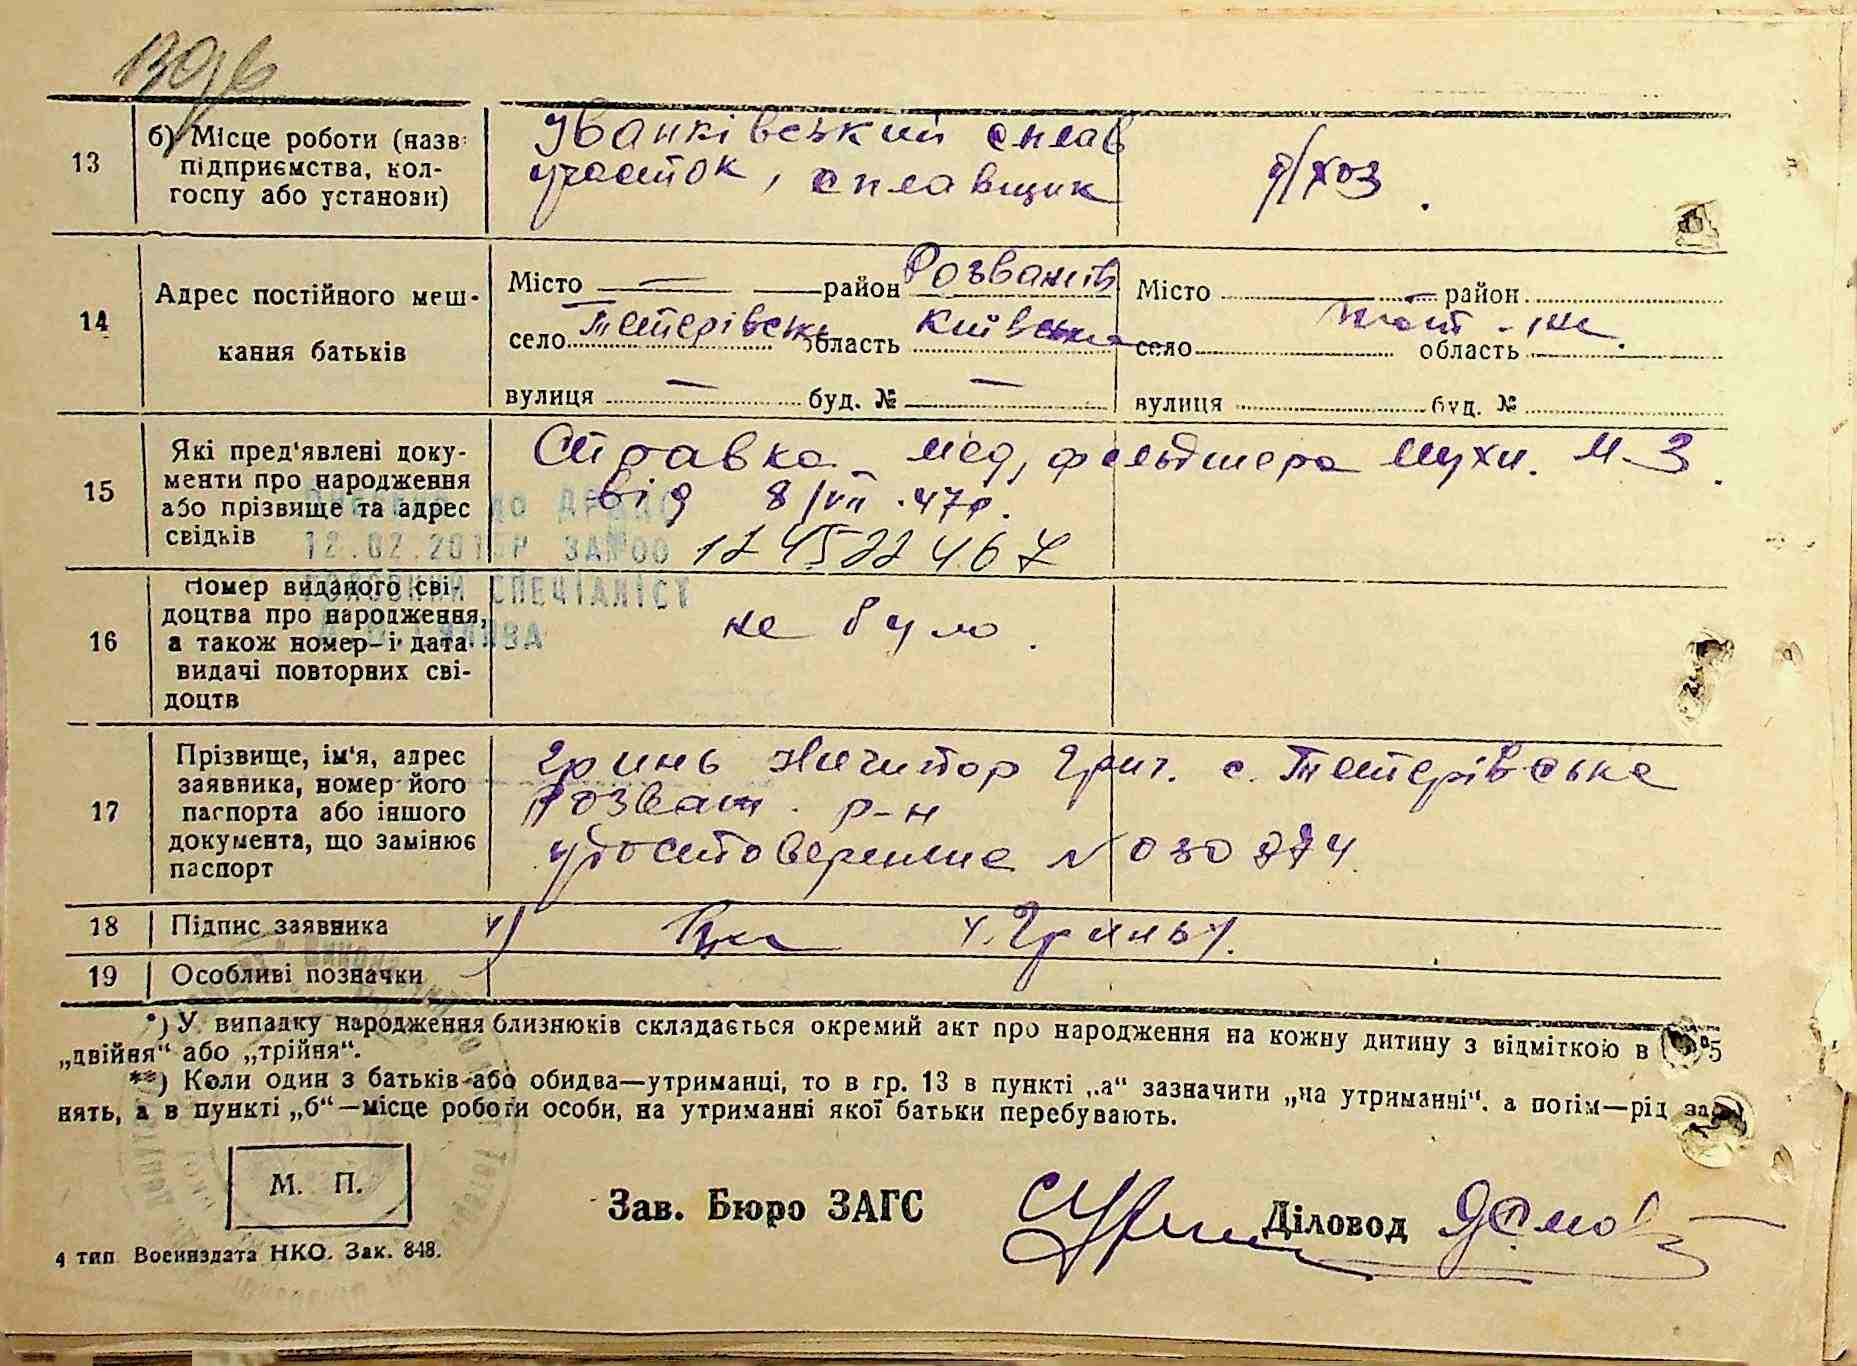 13
б) Місце роботи (назв
підприємства, кол-
госпу або установи)
Іванківський сплав
участок, сплавщик
д/хоз.
14
Адрес постійного меш-
кання батьків
Місто — район Розважів
село Тетерівськ область Київська
вулиця — буд. № —
Місто район
село область
вулиця буд. №
15
Які пред'явлені доку-
менти про народження
або прізвище та адрес
свідків
Справка мед, фельдшера Мухи. М. З.
від 8/VII.47р.
12.02.201
СПЕЦІАЛІСТ
16
Номер виданого сві-
доцтва про народження,
а також номер і дата
видачі повторних сві-
доцтв
не було.
17
Прізвище, ім'я, адрес
заявника, номер його
паспорта або іншого
документа, що замінює
паспорт
Гринь Ничипор Григ. с. Тетерівське
Розваж. р-н
удостоверение №
18
Підпис заявника
Гринь
19
Особливі позначки
*) У випадку народження близнюків складається окремий акт про народження на кожну дитину з відміткою в
„двійня“ або „трійня“.
**) Коли один з батьків або обидва—утриманці, то в гр. 13 в пункті „а“ зазначити „на утриманні“. а потім—рід за
нять, а в пункті „б“—місце роботи особи, на утриманні якої батьки перебувають.
М. П.
Зав. Бюро ЗАГС
Діловод
4 тип Воениздата НКО. Зак. 848.